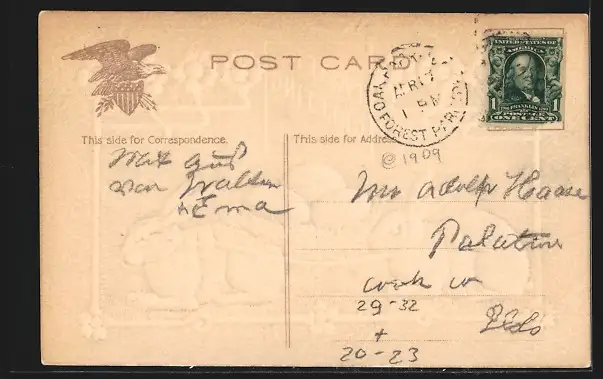 POST CARD
OAK PARK
APR 7
1 PM
FOREST PARK
UNITED STATES OF AMERICA
FRANKLIN
1 POSTAGE 1
ONE CENT
This side for Correspondence.
This side for Address
@ 1909
Mit Gruß
von Walter
Ema
Mr Adolph Haase
Palatine
Cook
29-32
+
20-23